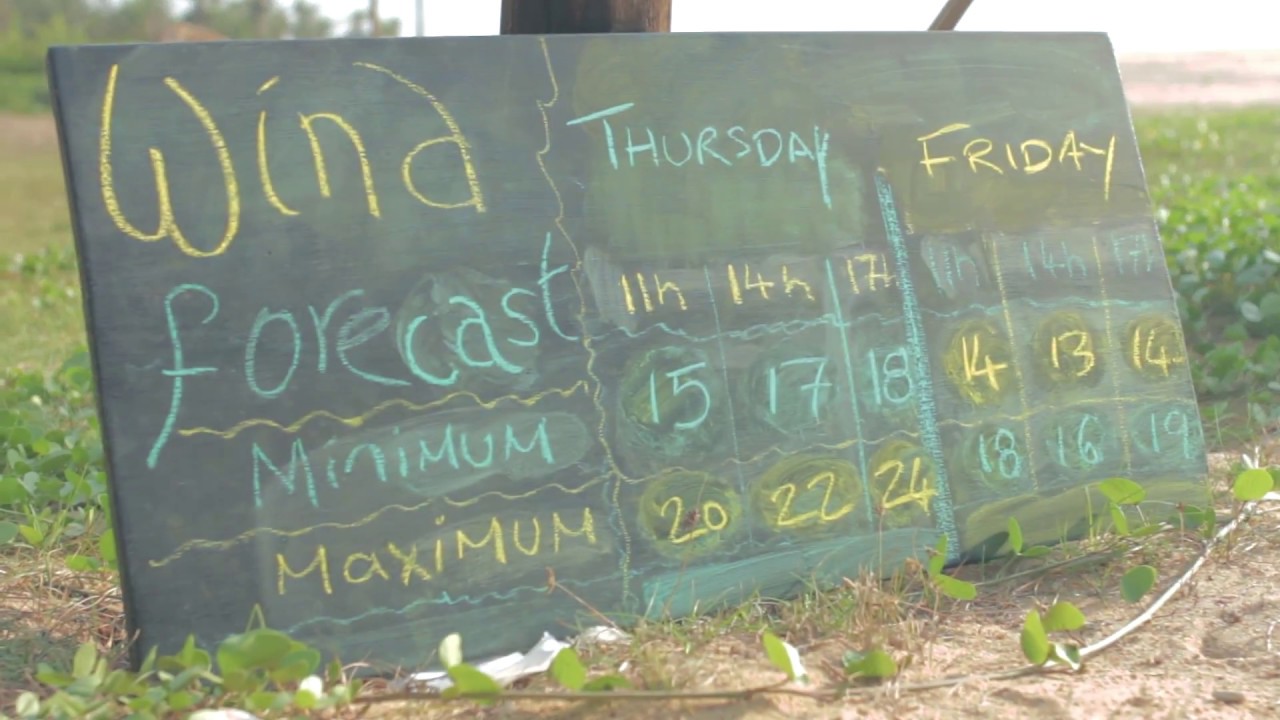 Wind THURSDAY FRIDAY
forecast 11h 14h 17h 11h 14h 17h
15 17 18 14 13 14
MiniMUM 18 16 19
MaxiMUM 20 22 24